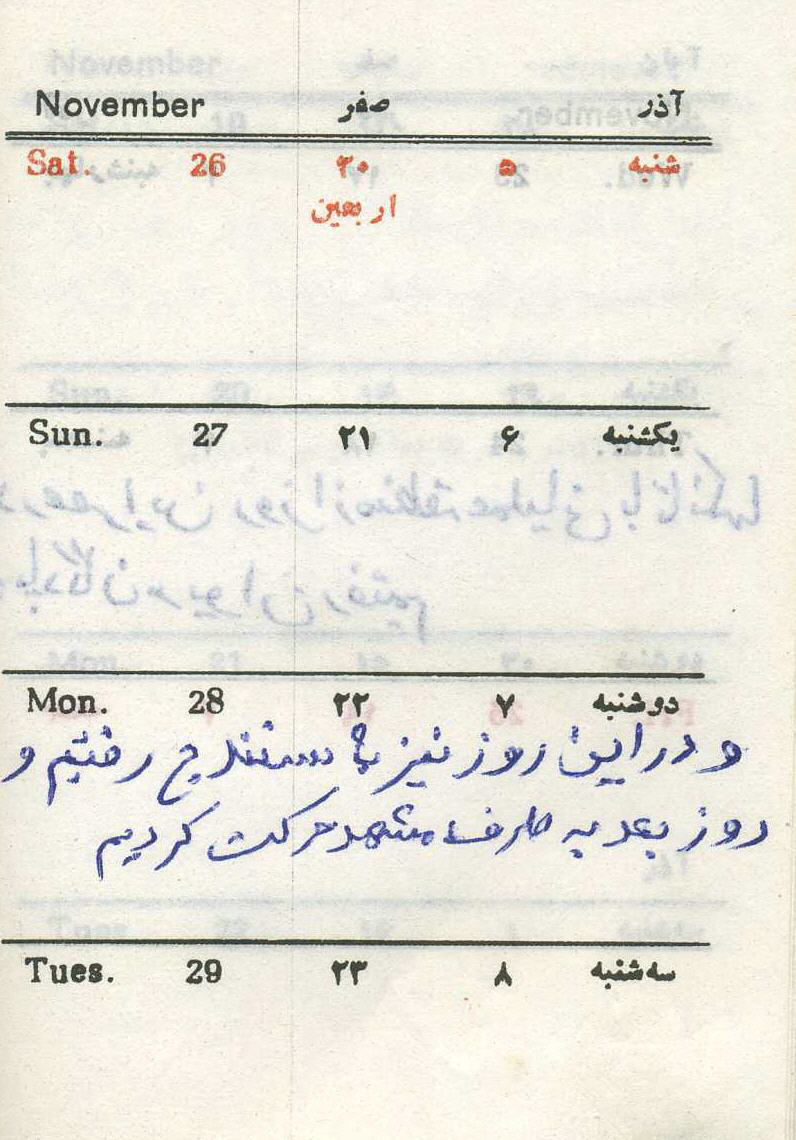 November صفر آذر
Sat. 26 ۲۰ ۵ شنبه
اربعین
Sun. 27 ۲۱ ۶ یکشنبه
Mon. 28 ۲۲ ۷ دوشنبه
و در این روز نیز تا سنندج رفتیم و
روز بعد به طرف مشهد حرکت کردیم
Tues. 29 ۲۳ ۸ سه‌شنبه